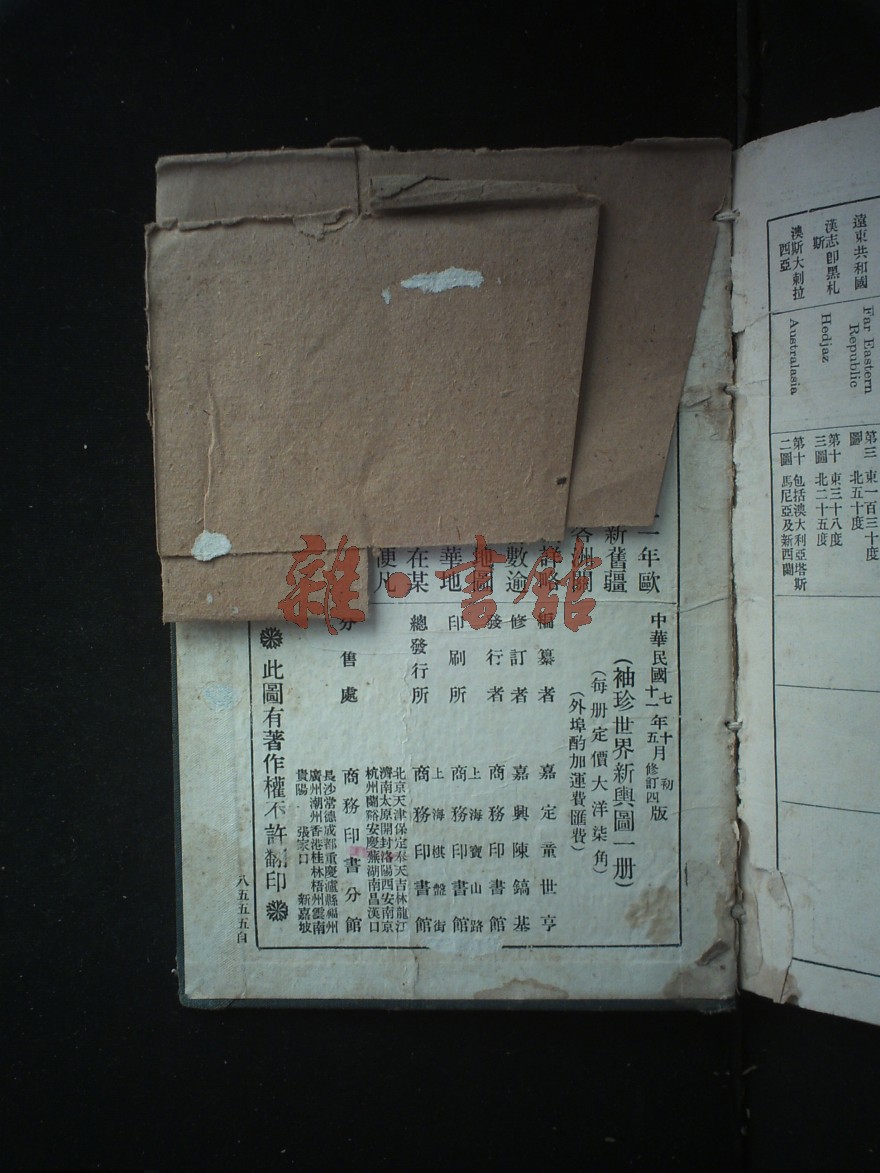 遠東共和國 Far Eastern Republic 第三圖 東一百三十度 北五十度
漢志卽黑札斯 Hedjaz 第十三圖 東三十八度 北二十五度
澳斯大剌拉西亞 Australasia 第十二圖 包括澳大利亞塔斯馬尼亞及新西蘭
年歐
新舊疆
洲關
群略
數逾
地圖
華地
在某
便凡
中華民國七年十月初版
十一年五月修訂四版
(袖珍世界新輿圖一册)
(每册定價大洋柒角)
(外埠酌加運費匯費)
編纂者 嘉定童世亨
修訂者 嘉興陳鎬基
發行者 商務印書館
印刷所 上海寶山路 商務印書館
總發行所 上海棋盤街 商務印書館
分售處 商務印書分館
北京天津保定奉天吉林龍江
濟南太原開封洛陽西安南京
杭州蘭谿安慶蕪湖南昌漢口
長沙常德成都重慶瀘縣福州
廣州潮州香港桂林梧州雲南
貴陽 張家口 新嘉坡
此圖有著作權不許翻印
八五五五自
雜·書館